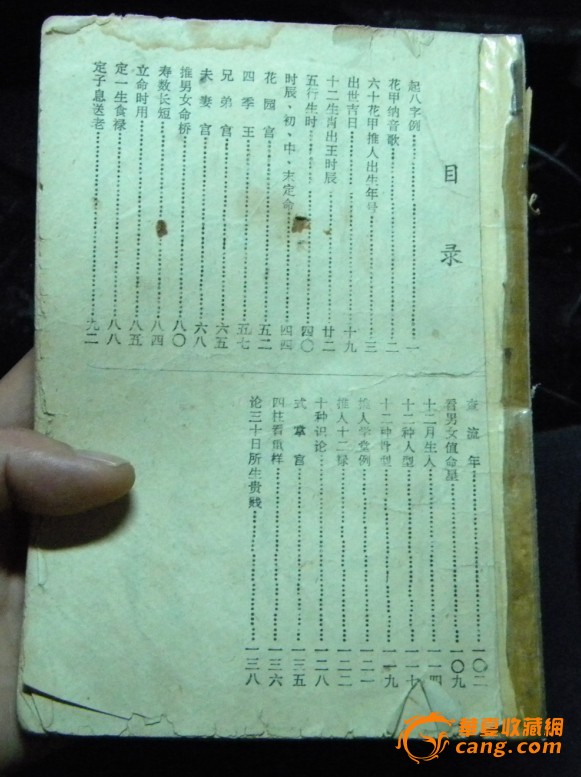 目录
起八字例……一
花甲纳音歌……二
六十花甲推人出生年号……三
出世吉日……十九
十二生肖出王时辰……廿二
五行生时……四〇
时辰、初、中、末定命……四四
花园宫……五二
四季王……五七
兄弟宫……六五
夫妻宫……六八
推男女命桥……八〇
寿数长短……八四
立命时用……八五
定一生食禄……八八
定子息送老……九二
流年……一〇二
看男女值命星……一〇九
十二月生人……一一四
十二种人型……一一七
十二种骨型……一一九
推人学堂例……一二一
推人十二禄……一二二
十种识论……一二八
式掌宫……一三五
四柱看俱样……一三六
论三十日所生贵贱……一三八
華夏收藏網
cang.com